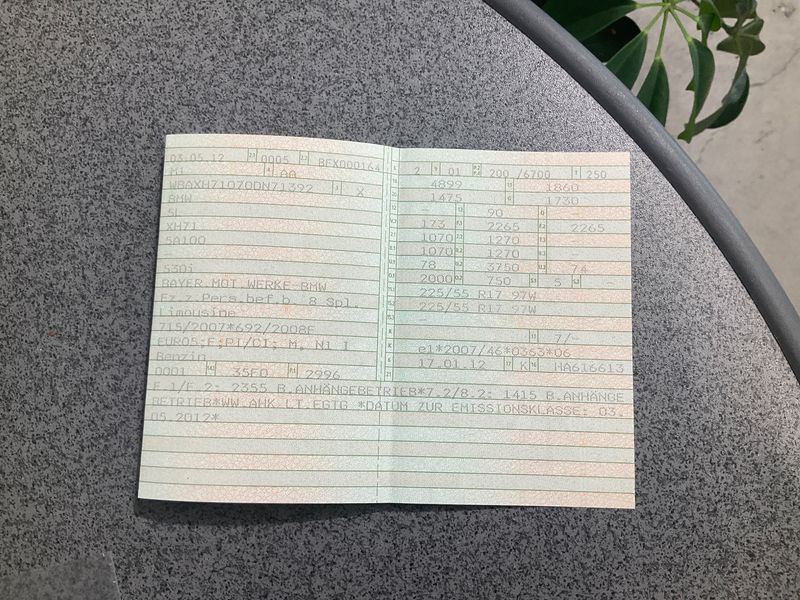 03.05.12 0005 BFX000164
M1 AA
WBAXH71070DN71392 X
BMW
5L
XH71
5A100
-
530i
BAYER.MOT.WERKE-BMW
Fz.z.Pers.bef.b. 8 Spl.
Limousine
715/2007*692/2008F
EURO5;F;PI/CI; M, N1 I
Benzin
0001 35F0 2996
2 01 200 /6700 250
4899 1860
1475 1730
90 -
173 2265 2265
1070 1270 -
1070 1270 -
78 3750 74
2000 750 5 -
225/55 R17 97W
225/55 R17 97W
7/-
e1*2007/46*0363*06
17.01.12 K HA616613
F.1/F.2: 2355 B.ANHÄNGEBETRIEB*7.2/8.2: 1415 B.ANHÄNGE
BETRIEB*WW.AHK LT.EGTG *DATUM ZUR EMISSIONSKLASSE: 03.
05.2012*